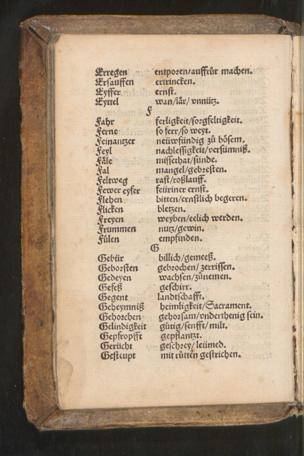 Erregen entporen/auffrůr machen.
Ersauffen ertrincken.
Eyffer ernst.
Eyttel wan/lår/vnnütz.
F
Fahr ferligkeit/sorgfeltigkeit.
Ferne so ferr/so weyt.
Feinantzer neüwfündig zů bösem.
Feyl nachlessigkeit/versümniß.
Fåle missethat/sünde.
Fal mangel/gebresten.
Feltweg rast/roßlauff.
Fewer eyfer feüriner ernst.
Flehen bitten/ernstlich begeren.
Flicken bletzen.
Freyen weyben/eelich werden.
Frummen nutz/gewin.
Fülen empfinden.
G
Gebür billich/gemeeß.
Geborsten gebrochen/zerrissen.
Gedeyen wachsen/zůnemen.
Gefeß geschirr.
Gegent landtschafft.
Geheymniß heimligkeit/Sacrament.
Gehorchen gehorsam/vnderthenig sein.
Gelindigkeit gütig/senfft/milt.
Gepfropfft gepflantzt.
Gerücht geschrey/leümed.
Gesteupt mit růtten gestrichen.